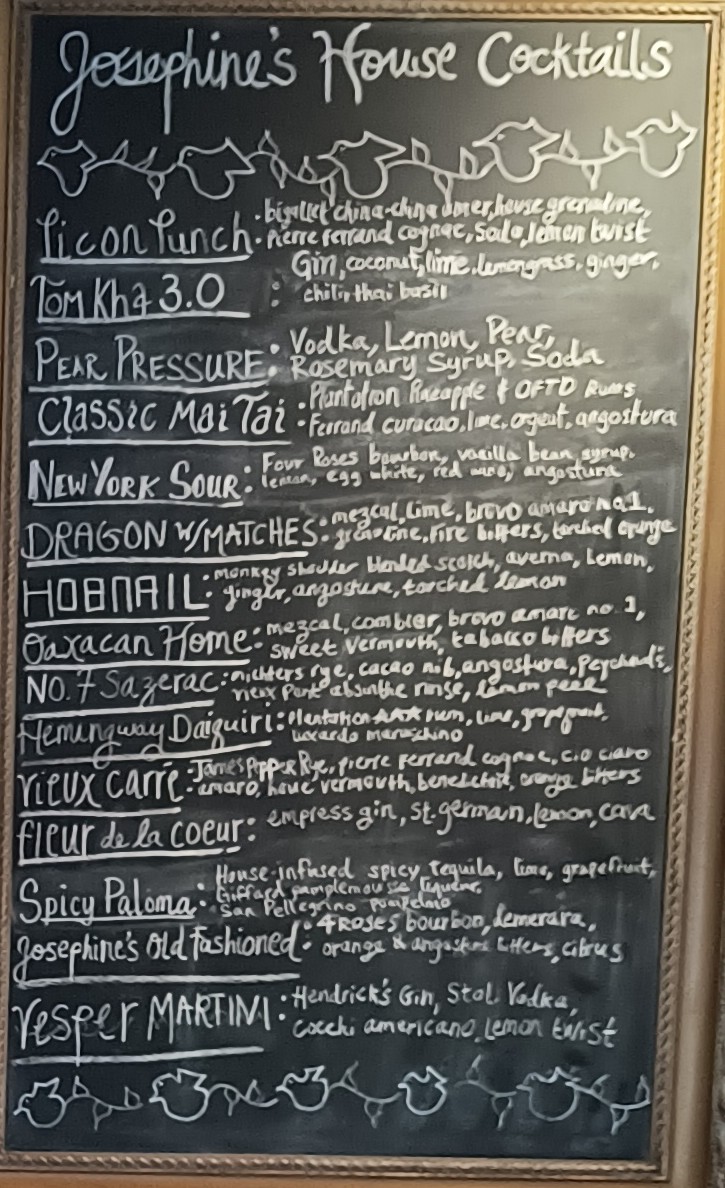 Josephine's House Cocktails
Picon Punch · bigallet china-china amer, house grenadine,
· Pierre Ferrand cognac, Soda, lemon twist
Tom Kha 3.0 : Gin, coconut, lime, lemongrass, ginger,
chili, thai basil
PEAR PRESSURE: Vodka, Lemon, Pear,
Rosemary Syrup, Soda
Classic Mai Tai : Plantation Pineapple & OFTD Rums
Ferrand curacao, lime, orgeat, angostura
NEW YORK SOUR: Four Roses bourbon, vanilla bean syrup,
lemon, egg white, red wine, angostura
DRAGON W/MATCHES: mezcal, lime, brovo amaro no 1,
grenadine, fire bitters, torched orange
HOBNAIL: monkey shoulder blended scotch, averna, lemon,
ginger, angostura, torched lemon
Oaxacan Home: mezcal, combier, brovo amaro no. 1,
sweet vermouth, tabacco bitters
NO. 7 Sazerac: michters rye, cacao nib, angostura, Peychauds,
vieux pont absinthe rinse, lemon peel
Hemingway Daiquiri: Plantation rum, lime, grapefruit,
luxardo maraschino
vieux carré: James Pepper Rye, pierre ferrand cognac, cio ciaro
amaro, vermouth, benedictin, orange bitters
fleur de la coeur: empress gin, st. germain, lemon, cava
Spicy Paloma: House-infused spicy tequila, lime, grapefruit,
Giffard pamplemousse liqueur,
San Pellegrino pompelmo
Josephine's Old Fashioned: 4 ROSES bourbon, demerara,
orange & angostura bitters, citrus
Vesper MARTINI: Hendrick's Gin, Stoli Vodka,
Cocchi americano, Lemon twist